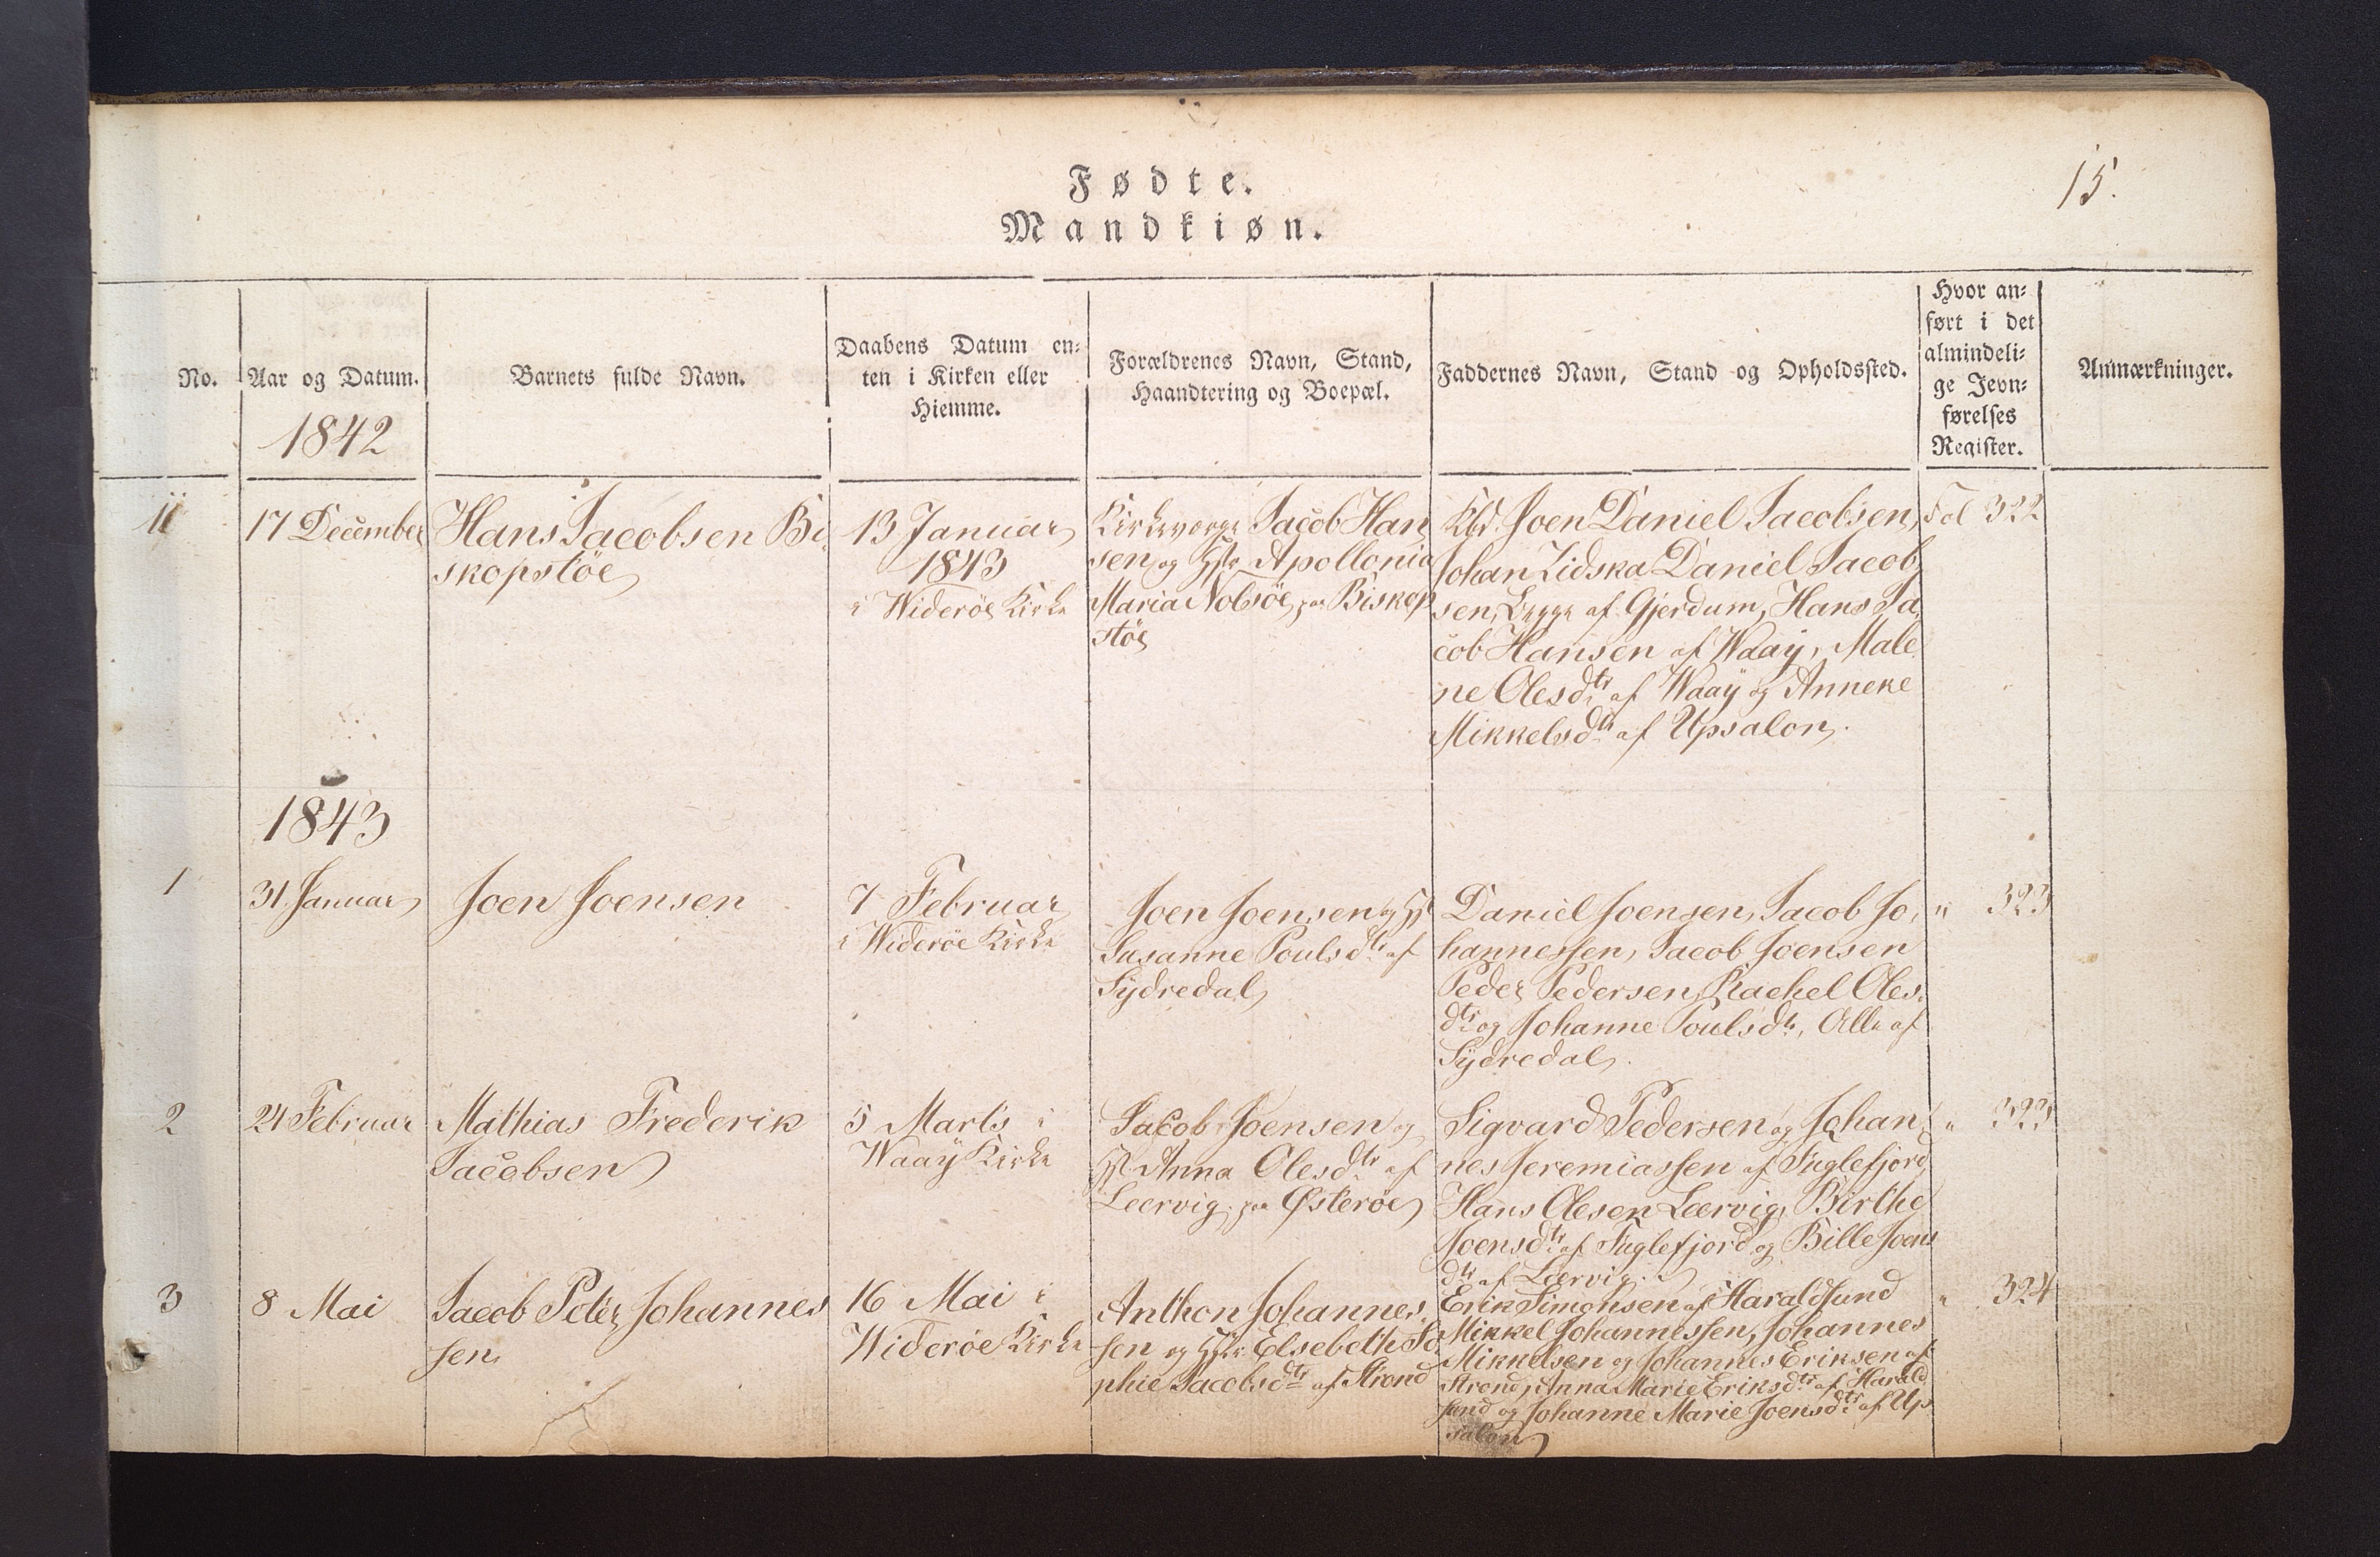 Fødte.
15.
Mandkiøn.
No.
Aar og Datum.
1842
Barnets fulde Navn.
Daabens Datum en-
ten i Kirken eller
Hiemme.
Forældrenes Navn, Stand,
Haandtering og Boepæl.
Faddernes Navn, Stand og Opholdssted.
Hvor an-
ført i det
almindeli-
ge Jevn-
førelses
Register.
Anmærkninger.
11
17 December
Hans Jacobsen Bi
skopstöe
13 Januar
1843
i Wideröe Kirke
Kirkeværge Jacob Han
sen og Hstr Apollonia
Maria Nolsöe paa Biskop
stöe
Kbd. Joen Daniel Jacobsen,
Johan Lidska Daniel Jacob
sen, Begge af Gjerdum, Hans Ja
cob Hansen af Waaÿ, Male
ne Olesdtr af Waaÿ og Anneke
Mikkelsdtr af Upsalon.
Fol 322
1843
1
31 Januar
Joen Joensen
7 Februar
i Wideröe Kirke
Joen Joensen og
Susanne Poulsdtr af
Sydredal
Daniel Joensen, Jacob Jo,
hannessen, Jacob Joensen
Peder Pedersen, Rachel Oles,
dtr og Johanne Poulsdtr, Alle af
Sydredal.
" 323
2
24 Februar
Mathias Frederik
Jacobsen
5 Marts i
Waaÿ Kirke
Jacob Joensen og
Anna Olesdtr af
Leervig paa Østeröe
Sigvard Pedersen og Johan
nes Jeremiassen af Fuglefjord
Hans Olesen Leervig, Birthe
Joensdtr af Fuglefjord og Bille Joens
dtr af Leervig.
" 323
3
8 Mai
Jacob Peter Johannes
sen
16 Mai i
Wideröe Kirke
Anthon Johannes,
sen og Hstr Elsebeth So
phie Jacobsdtr af Strond
Erik Simonsen af Haraldsund
Mikkel Johannessen, Johannes
Mikkelsen og Johannes Eriksen af
Strond, Anna Marie Eriksdtr af Harald
sund og Johanne Marie Joensdtr af Up
salon
" 324